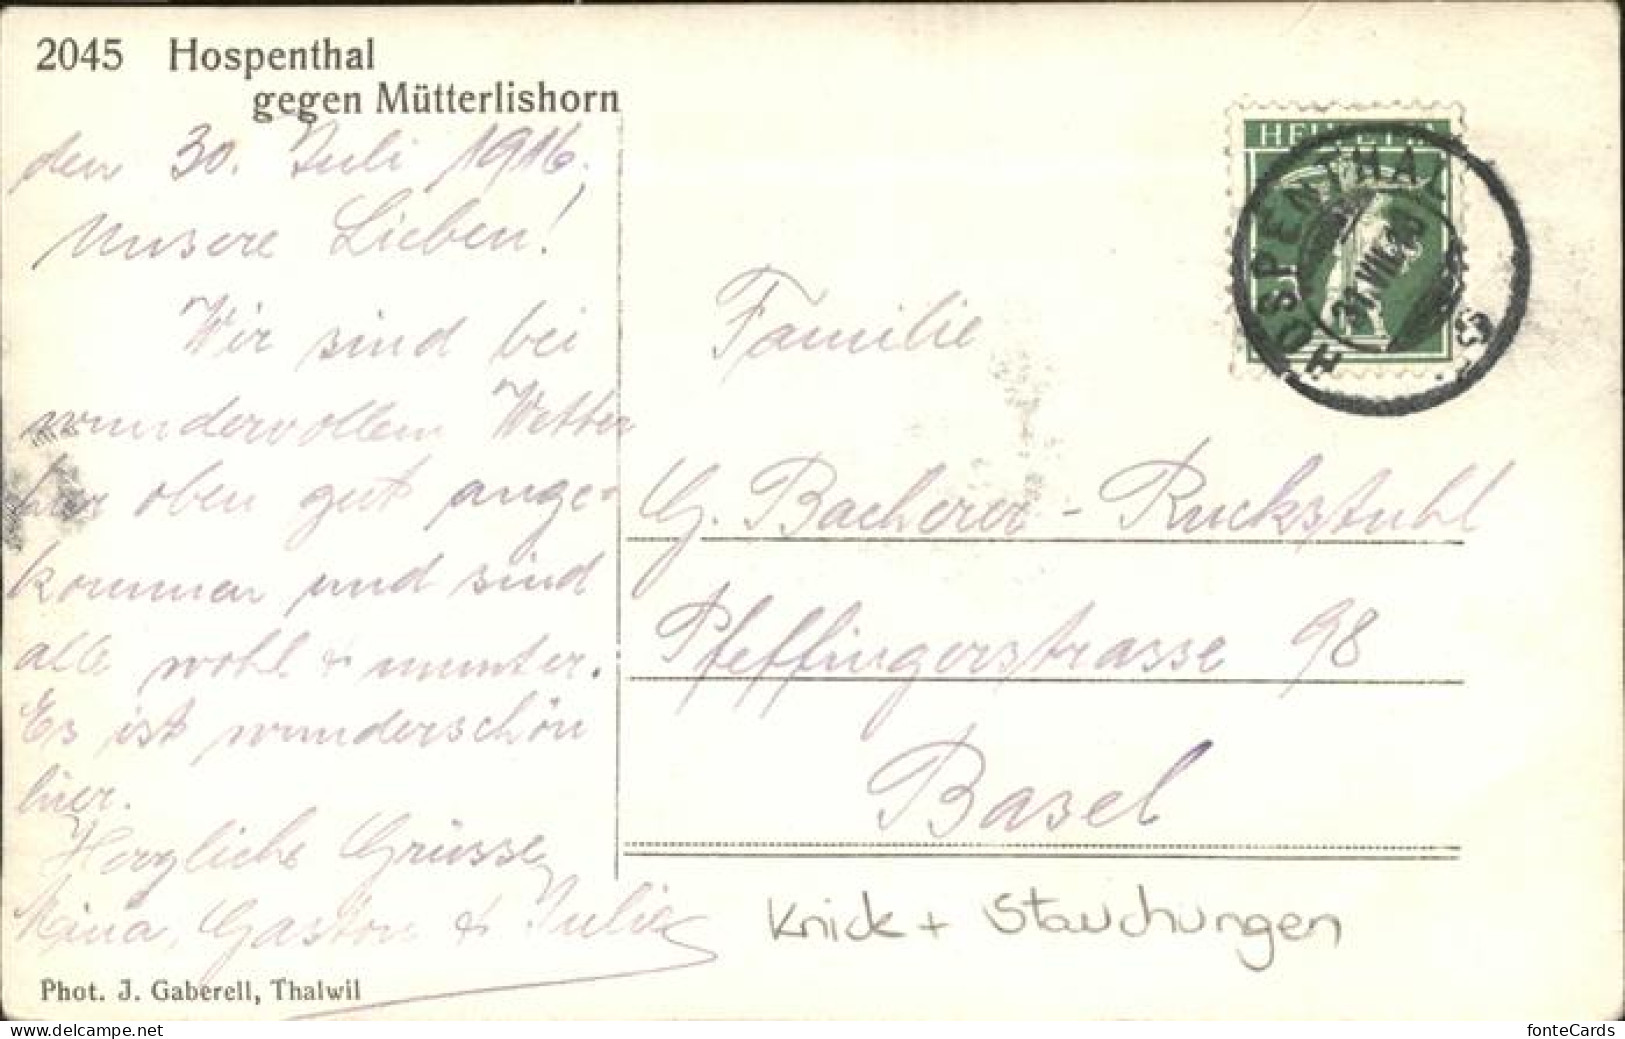 2045 Hospenthal
gegen Mütterlishorn
den 30. Juli 1916.
Unsere Lieben!
Wir sind bei
wundervollem Wetter
hier oben gut ange-
kommen und sind
alle wohl & munter.
Es ist wunderschön
hier.
Herzliche Grüsse
Mina, Gaston & Julie
Phot. J. Gaberell, Thalwil
HELVETIA
HOSPENTHAL
31.VII.16
Familie
G. Bacherer-Ruckstuhl
Pfeffingerstrasse 98
Basel
Knick + Stauchungen
www.delcampe.net
fonteCards